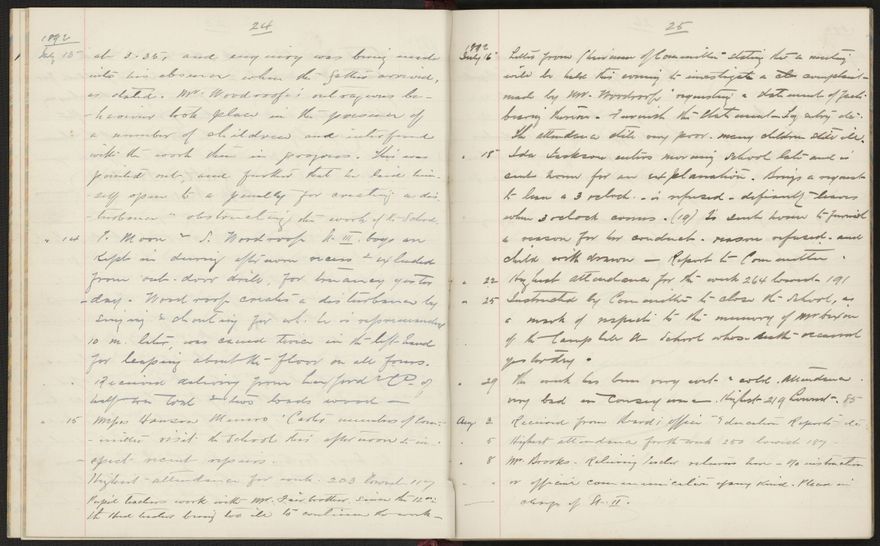 24
1892
July 13 at 3.35, and enquiry was being made
into his absence when the father arrived,
as stated. Mr. Woodroofe's outrageous be-
-haviour took place in the presence of
a number of children and interfered
with the work then in progress. This was
pointed out, and further that he laid him-
-self open to a penalty for creating a dis-
-turbance & obstructing the work of the School.
" 14 P. Moon & S. Woodroofe St. III. boys are
kept in during afternoon recess & excluded
from out-door drill, for truancy yester-
-day. Woodroofe creates a disturbance by
singing & shouting for wh. he is reprimanded
10 m. later, was caned twice in the left hand
for leaping about the floor on all fours.
Received delivery from &
half ton Coal & two loads wood —
" 15 Messrs Hanson Munro & Carter members of Com-
-mittee visit the School this afternoon to in-
-spect recent repairs.
Highest attendance for week. 203 lowest 117
Pupil teachers work with Mr. Fairbrother since the 12th
the Head teacher being too ill to continue the work —
25
1892
July 16 Letter from Chairman of Committee stating that a meeting
will be held this evening to investigate a complaint
made by Mr. Woodroofe; requesting a statement of facts
bearing thereon. Furnish the statement
The attendance still very poor. many children still ill.
" 18 Ida Jackson enters morning School late and is
sent home for an explanation. brings a request
to leave a 3 o'clock. - is refused - defiantly leaves
when 3 o'clock comes. (19) Is sent home to furnish
a reason for her conduct. reason refused. and
child withdrawn — Report to Committee.
" 22 Highest attendance for the week 264 lowest 191
" 25 Instructed by Committee to close the School, as
a mark of respect to the memory of Mr
of the Campbell St School whose death occurred
yesterday.
" 29 The week has been very wet & cold. Attendance
very bad in consequence. Highest 219 Lowest 85
Aug 2 Received from Board's office "Education Reports" etc.
" 5 Highest attendance for the week 250 lowest 187
" 8 Mr. Brooks - Relieving teacher returns here - No instruction
or official communication of any kind. Place in
charge of St. II.